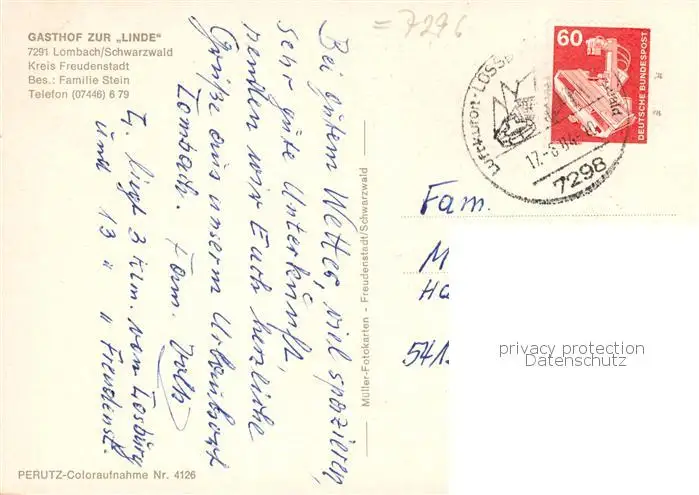 GASTHOF ZUR „LINDE"
7291 Lombach/Schwarzwald
Kreis Freudenstadt
Bes.: Familie Stein
Telefon (07446) 6 79
= 7296
Bei gutem Wetter, viel spazieren,
sehr gute Unterkunft,
senden wir Euch herzliche
Grüße aus unserm Urlaubsort
Lombach. Fam. Volk
L. liegt 3 Klm. von Loßburg
und 13 " " Freudenst.
PERUTZ-Coloraufnahme Nr. 4126
Müller-Fotokarten - Freudenstadt/Schwarzwald
60
DEUTSCHE BUNDESPOST
LUFTKURORT-LOSSB
17.-8.84-10
7298
Fam.
M
Ha
541
privacy protection
Datenschutz